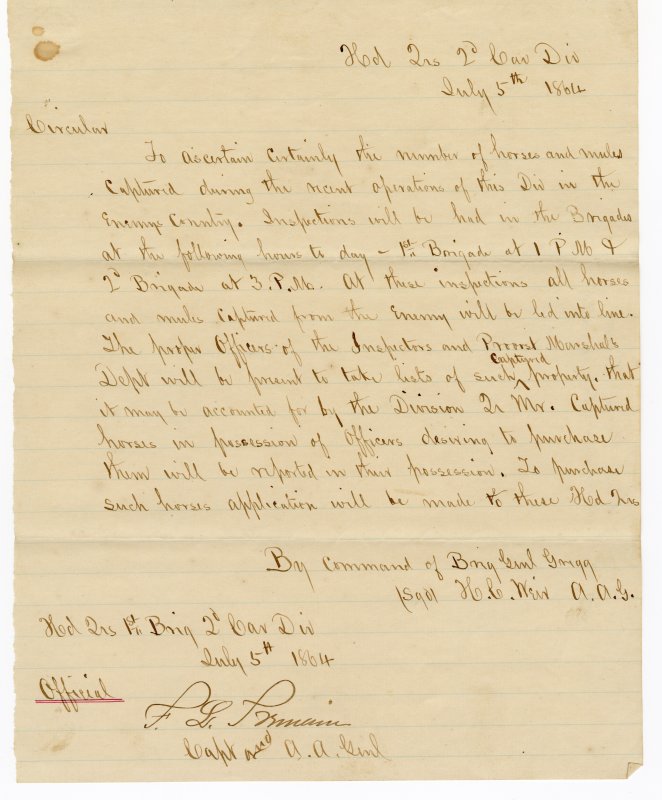 Hd Qrs 2d Cav Div
July 5th 1864
Circular
To ascertain certainly the number of horses and mules
Captured during the recent operations of this Div in the
Enemys Country. Inspections will be had in the Brigades
at the following hours to day – 1st Brigade at 1 P M &
2d Brigade at 3. P.M. At these inspections all horses
and mules captured from the Enemy will be led into line.
The proper Officers of the Inspectors and Provost Marshals
Dept will be present to take lists of such captured property. that
it may be accounted for by the Division Qr Mr. Captured
horses in possession of Officers desiring to purchase
them will be reported in their possession. To purchase
such horses application will be made to these Hd Qrs
By Command of Brig Genl Gregg
(Sgd) H. C. Weir A. A. G.
Hd Qrs 1st Brig 2d Cav Div
July 5th 1864
Official
F. G.
Capt and A. A. Genl